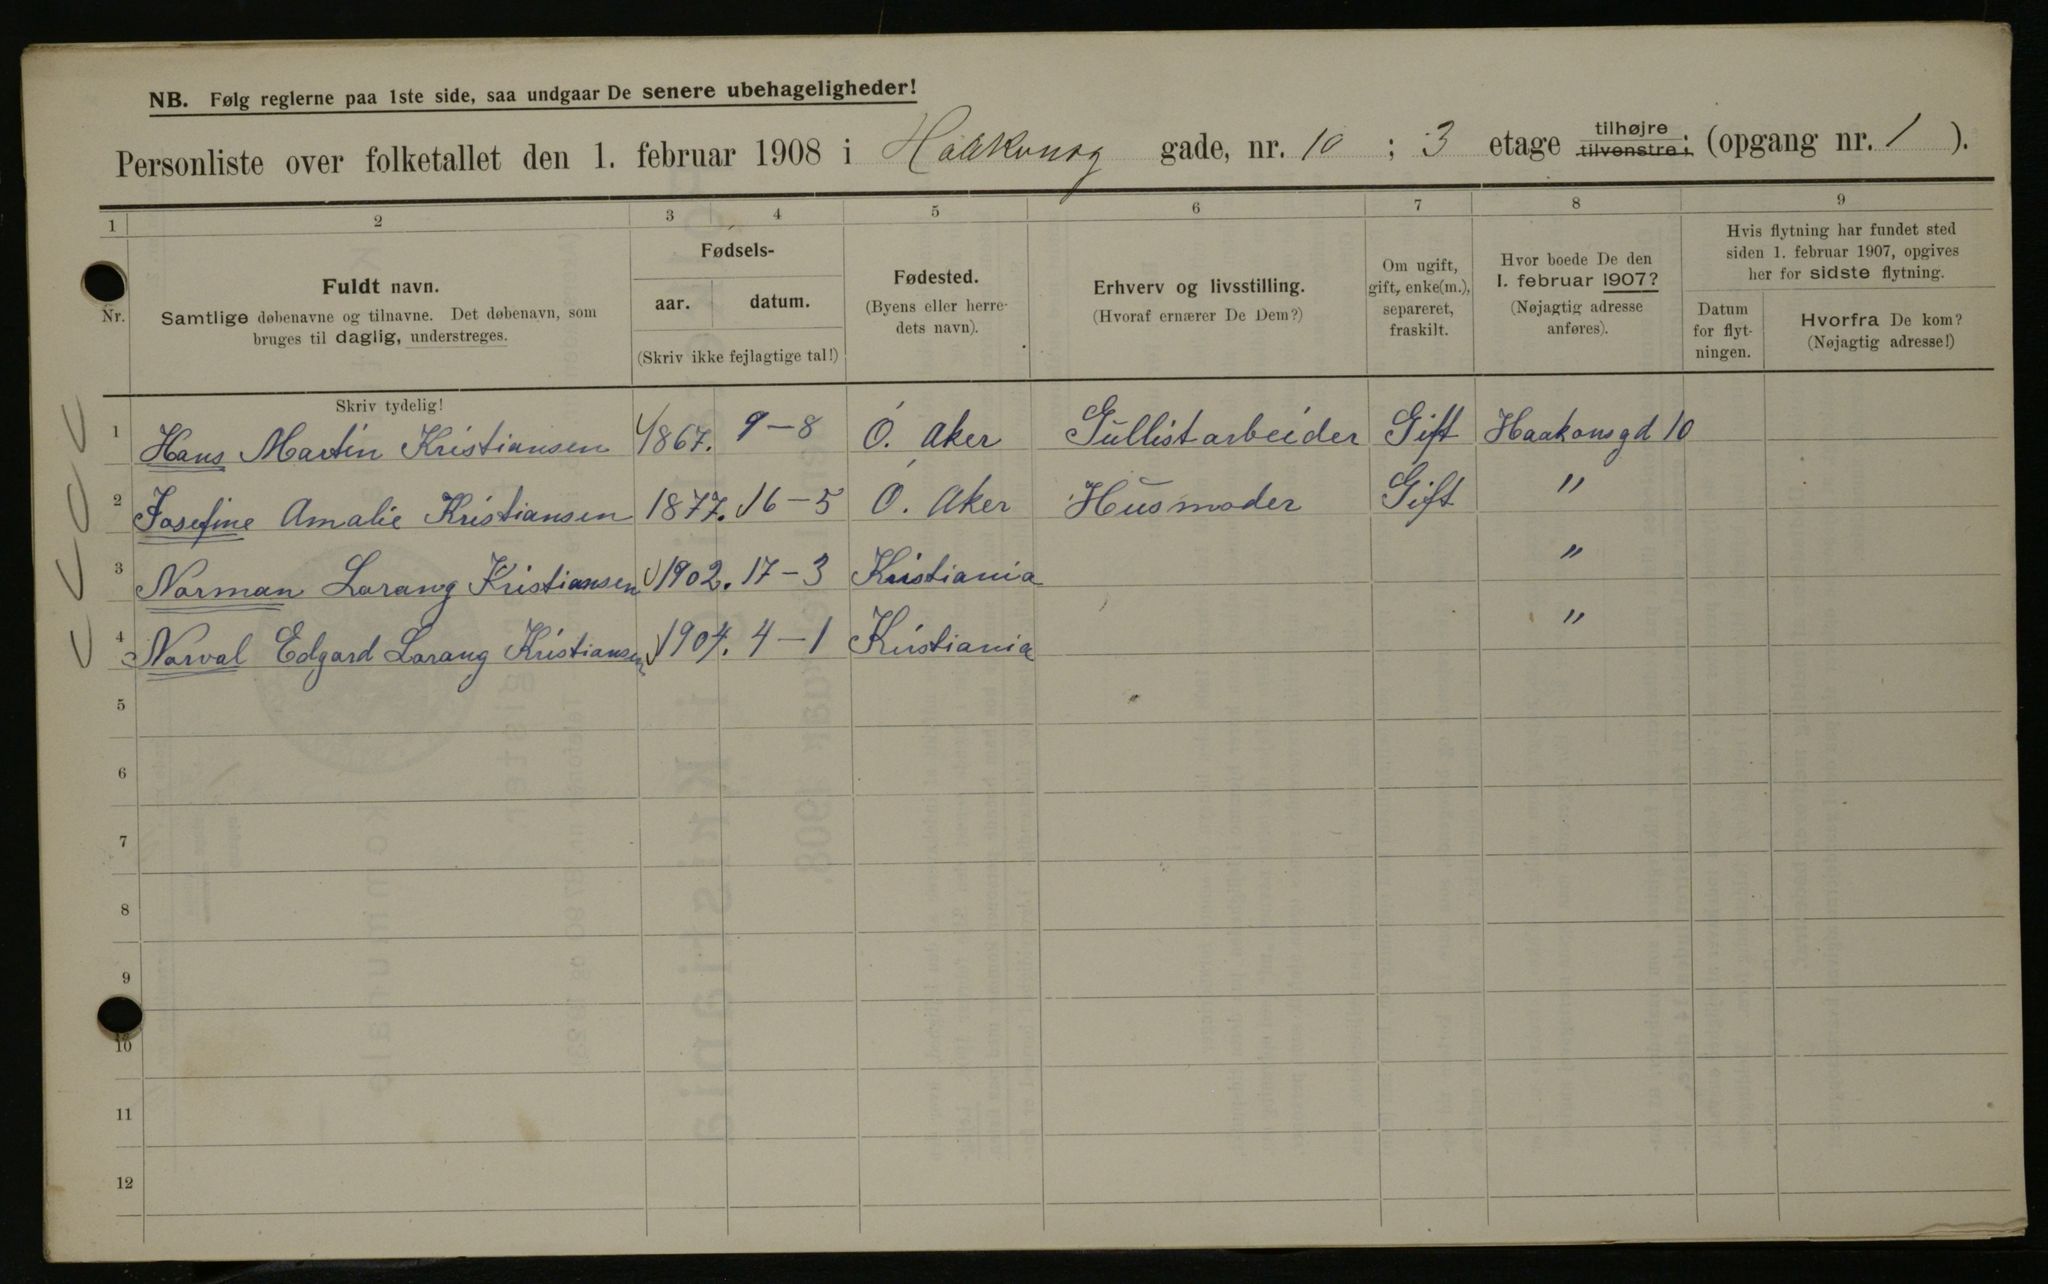 NB. Følg reglerne paa 1ste side, saa undgaar De senere ubehageligheder!
Personliste over folketallet den 1. februar 1908 i Haakonsg gade, nr. 10 ; 3 etage tilhøjre tilvenstre; (opgang nr. 1 ).
1 2 3 4 5 6 7 8 9
Nr.
Fuldt navn.
Samtlige døbenavne og tilnavne. Det døbenavn, som
bruges til daglig, understreges.
Fødsels-
aar. datum.
(Skriv ikke fejlagtige tal!)
Fødested.
(Byens eller herre-
dets navn).
Erhverv og livsstilling.
(Hvoraf ernærer De Dem?)
Om ugift,
gift, enke(m.),
separeret,
fraskilt.
Hvor boede De den
1. februar 1907?
(Nøjagtig adresse
anføres).
Hvis flytning har fundet sted
siden 1. februar 1907, opgives
her for sidste flytning.
Datum
for flyt-
ningen.
Hvorfra De kom?
(Nøjagtig adresse!)
Skriv tydelig!
1 Hans Martin Kristiansen 1867. 9-8 Ö. Aker Gullistarbeider Gift Haakonsgd 10
2 Josefine Amalie Kristiansen 1877. 16-5 Ö. Aker Husmoder Gift "
3 Norman Lorang Kristiansen 1902. 17-3 Kristiania "
4 Norval Edgard Lorang Kristiansen 1904. 4-1 Kristiania "
5
6
7
8
9
10
11
12